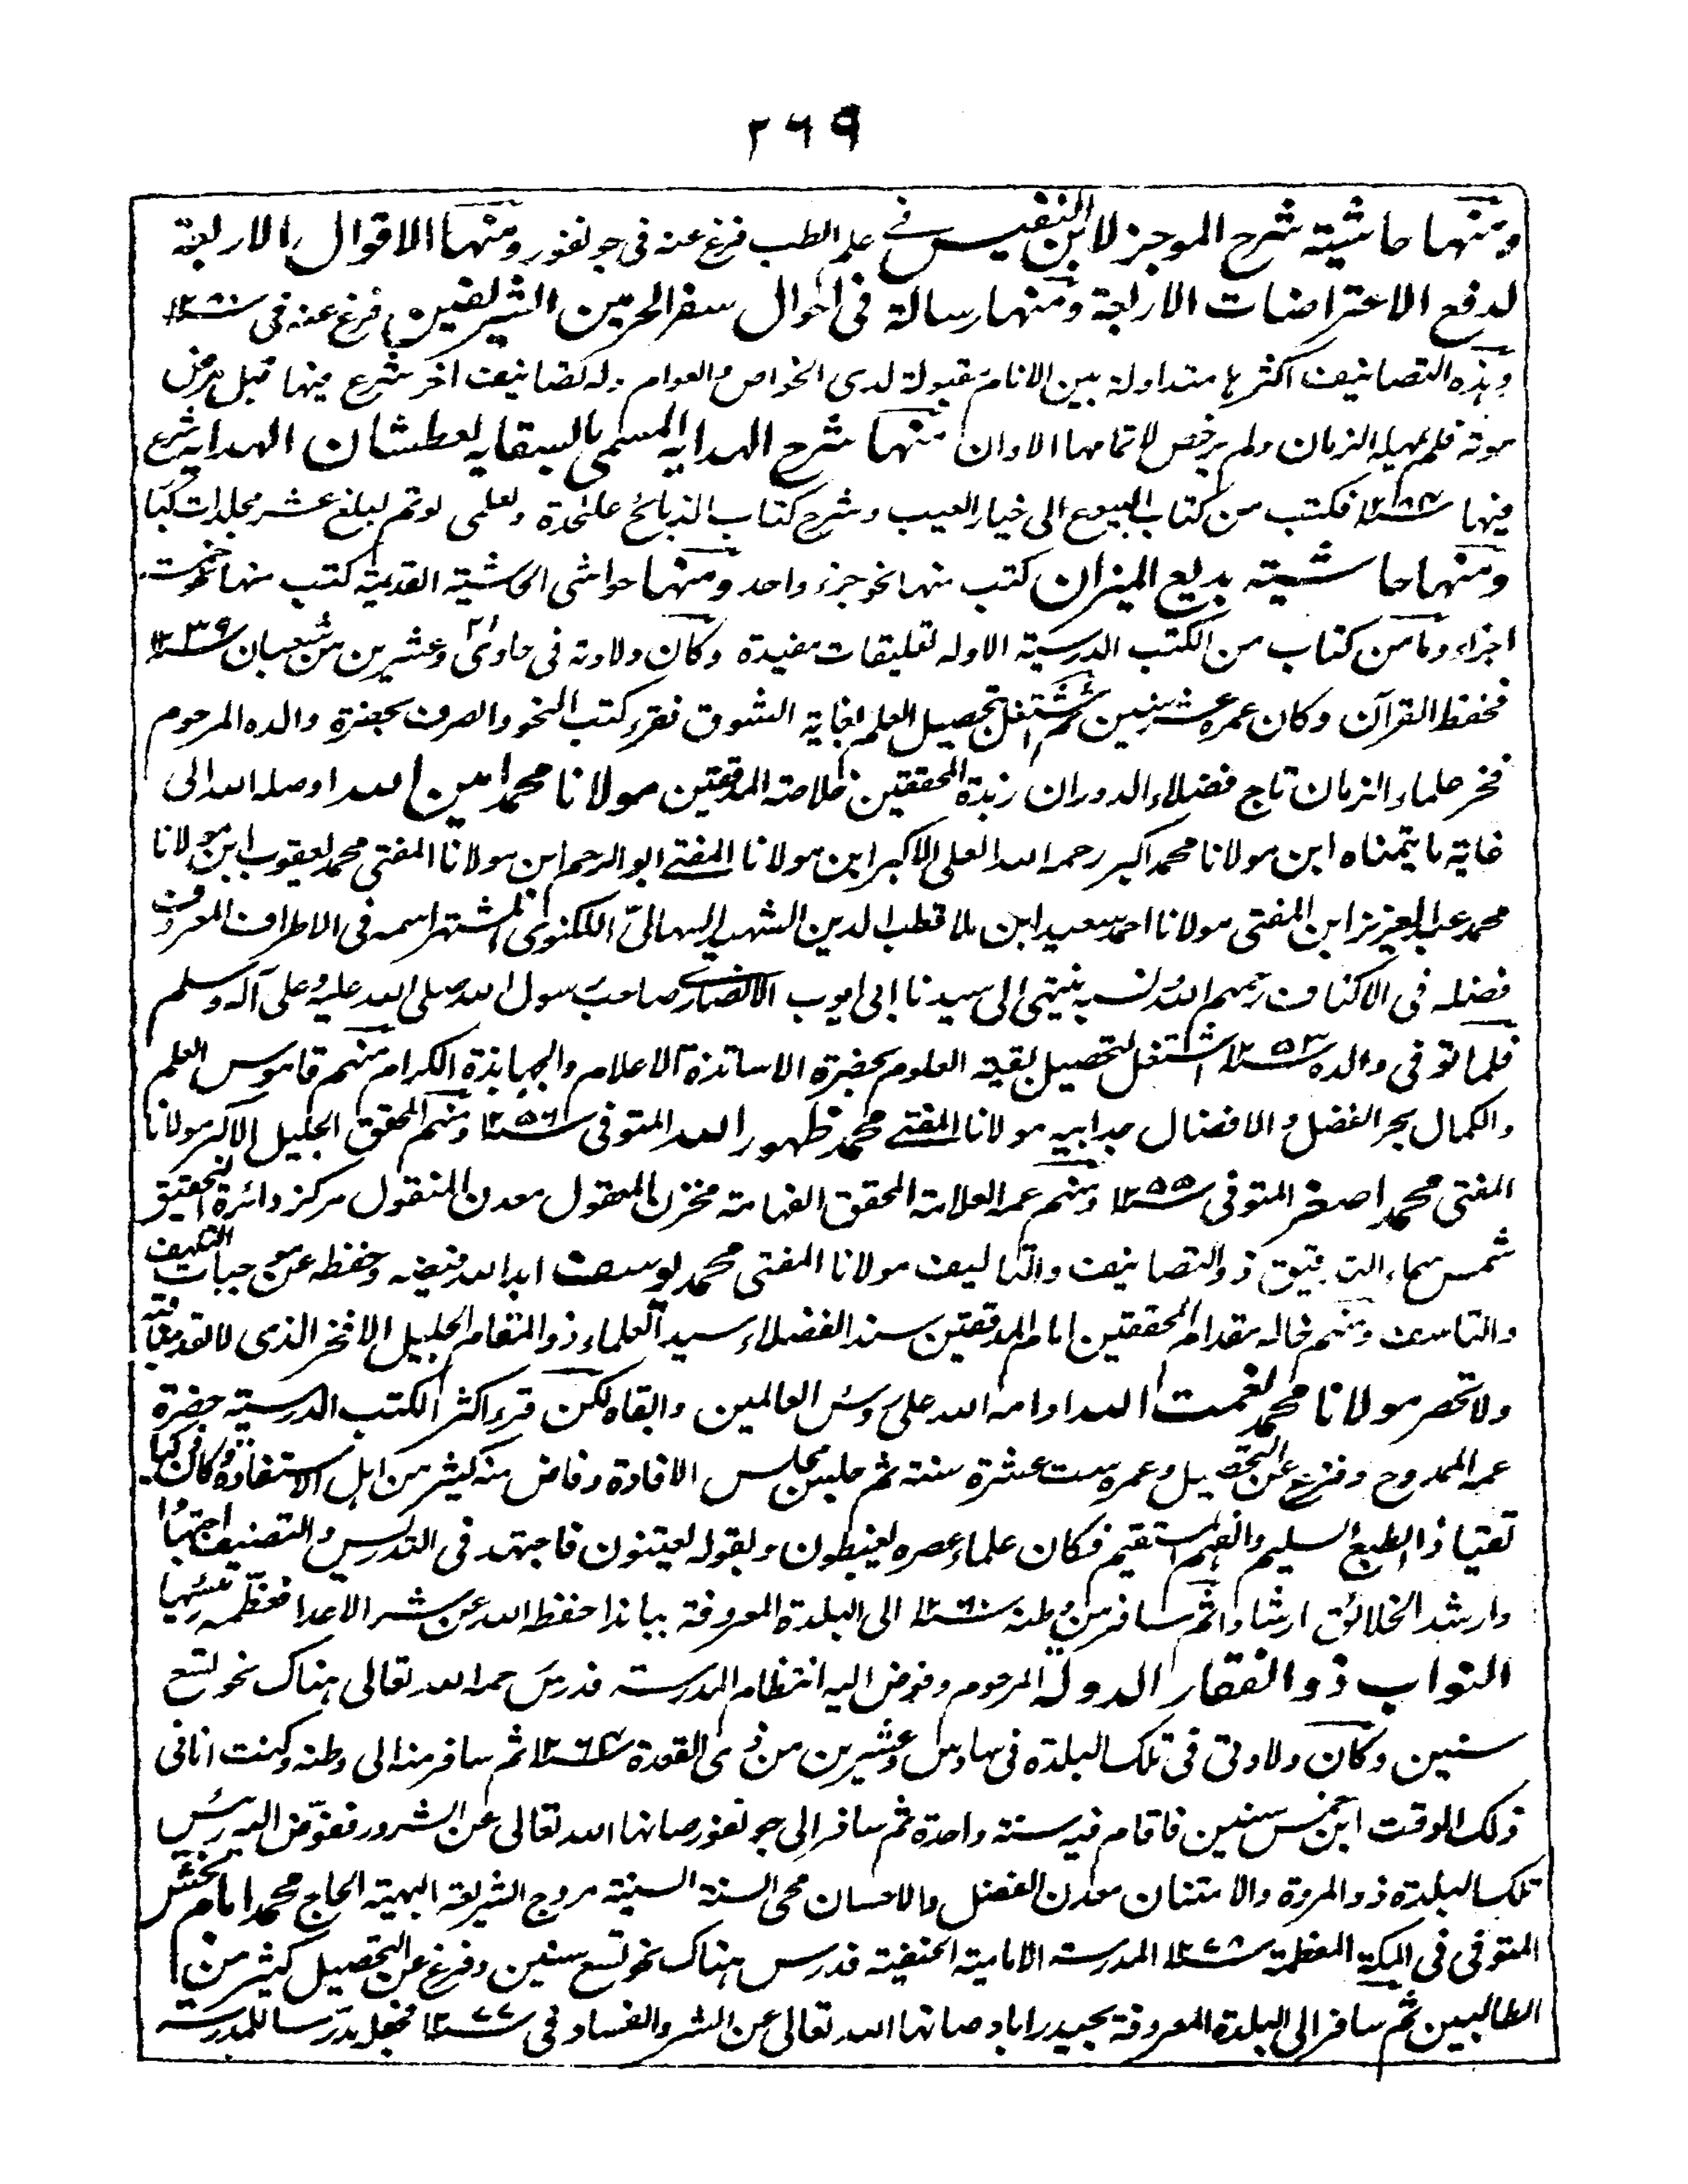 ۲۶۹
ومنها حاشية شرح الموجز لابن النفيس في علم الطب فرغ عنه في جونفور ومنها الاقوال الاربعة
لدفع الاعتراضات الاربعة ومنها رسالة في احوال سفر الحرمين الشريفين فرغ عنه في سنه ١٢٨٠
وهذه التصانيف اكثرها متداولة بين الانام مقبولة لدى الخواص والعوام وله تصانيف اخر شرع فيها قبل مرض
موته فلم يمهله الزمان ولم يرخص لاتمامها الاوان منها شرح الهدايه المسمى بالسقايه لعطشان الهدايه شرع
فيها سنه فكتب من كتاب البيوع الى خيار العيب وشرح كتاب الذبائح علىحدة ولعلمي لو تم لبلغ عشر مجلدات كبا
ومنها حاشيته بديع الميزان كتب منها نحو جزء واحد ومنها حواشي الحاشية القديمة كتب منها نحو ست
اجزاء وما من كتاب من الكتب الدرسية الا وله تعليقات مفيدة وكان ولادته في حادي ٢١ وعشرين من شعبان سنه ١٢٣٩
فحفظ القرآن وكان عمره عشر سنين ثم اشتغل بتحصيل العلم بغاية الشوق فقرء كتب النحو والصرف بحضرة والده المرحوم
فخر علماء الزمان تاج فضلاء الدوران زبدة المحققين خلاصة المدققين مولانا محمد امين الله اوصله الله الى
غاية ما يتمناه ابن مولانا محمد اكبر رحمه الله العلى الاكبر ابن مولانا المفتي ابو الرحم ابن مولانا المفتي محمد يعقوب ابن مولانا
محمد عبد العزيز ابن المفتي مولانا احمد سعيد ابن ملا قطب الدين الشهيد السهالىّ اللكنوى المشتهر اسمه في الاطراف المعروف
فضله في الاكناف رحمهم الله ونسبه ينتهي الى سيدنا ابي ايوب الانصاري صاحب رسول الله صلى الله عليه وعلى آله وسلم
فلما توفي والده سنه ١٢٥٣ اشتغل لتحصيل بقية العلوم بحضرة الاساتذة الاعلام والجهابذة الكرام منهم قاموس العلم
والكمال بحر الفضل والافضال جد ابيه مولانا المفتي محمد ظهور الله المتوفى سنه ١٢٥٦ ومنهم المحقق الجليل الاكبر مولانا
المفتي محمد اصغر المتوفى سنه ١٢٥٥ ومنهم عمه العلامة المحقق الفهامة مخزن المعقول معدن المنقول مركز دائرة التحقيق
شمس سماء التدقيق ذو التصانيف والتاليف مولانا المفتي محمد يوسف ابد الله فيضه وحفظه عن موجبات التلهف
والتاسف ومنهم خاله مقدام المحققين امام المدققين سند الفضلاء سيد العلماء ذو المقام الجليل الافخر الذى لا تعد مناقبه
ولا تحصر مولانا محمد نعمت الله ادامه الله على رؤس العالمين وابقاه لكن قرء اكثر الكتب الدرسية حضرة
عمه الممدوح وفرغ عن التحصيل وعمره ست عشرة سنة ثم جلس مجلس الافادة وفاض منه كثير من اهل الاستفادة وكان ذكيا
تقيا ذا الطبع السليم والفهم المستقيم فكان علماء عصره يغبطون وبقوله يعتنون فاجتهد في التدريس والتصنيف اجتهادا
وارشد الخلائق ارشادا ثم سافر من وطنه سنه ١٢٦٠ الى البلدة المعروفة بباندا حفظ الله عن شر الاعدا فعظّمه رئيسها
النواب ذو الفقار الدولة المرحوم وفوض اليه انتظام المدرسة فدرس رحمه الله تعالى هناك نحو تسع
سنين وكان ولادتي في تلك البلدة في سادس وعشرين من ذي القعدة سنه ١٢٦٤ ثم سافر منه الى وطنه وكنت انا في
ذلك الوقت ابن خمس سنين فاقام فيه سنة واحدة ثم سافر الى جونفور صانها الله تعالى عن الشرور ففوّض اليه رئيس
تلك البلدة ذو المروة والامتنان معدن الفضل والاحسان محى السنة السنية مروج الشريعة البهية الحاج محمد امام بخش
المتوفى في المكة المعظمة سنه ١٢٧٨ المدرسة الامامية الحنفية فدرس هناك نحو تسع سنين وفرغ عن التحصيل كثير من
الطالبين ثم سافر الى البلدة المعروفة بحيدراباد صانها الله تعالى عن الشر والفساد في سنه ١٢٧٧ فجعل مدرسا للمدرسة